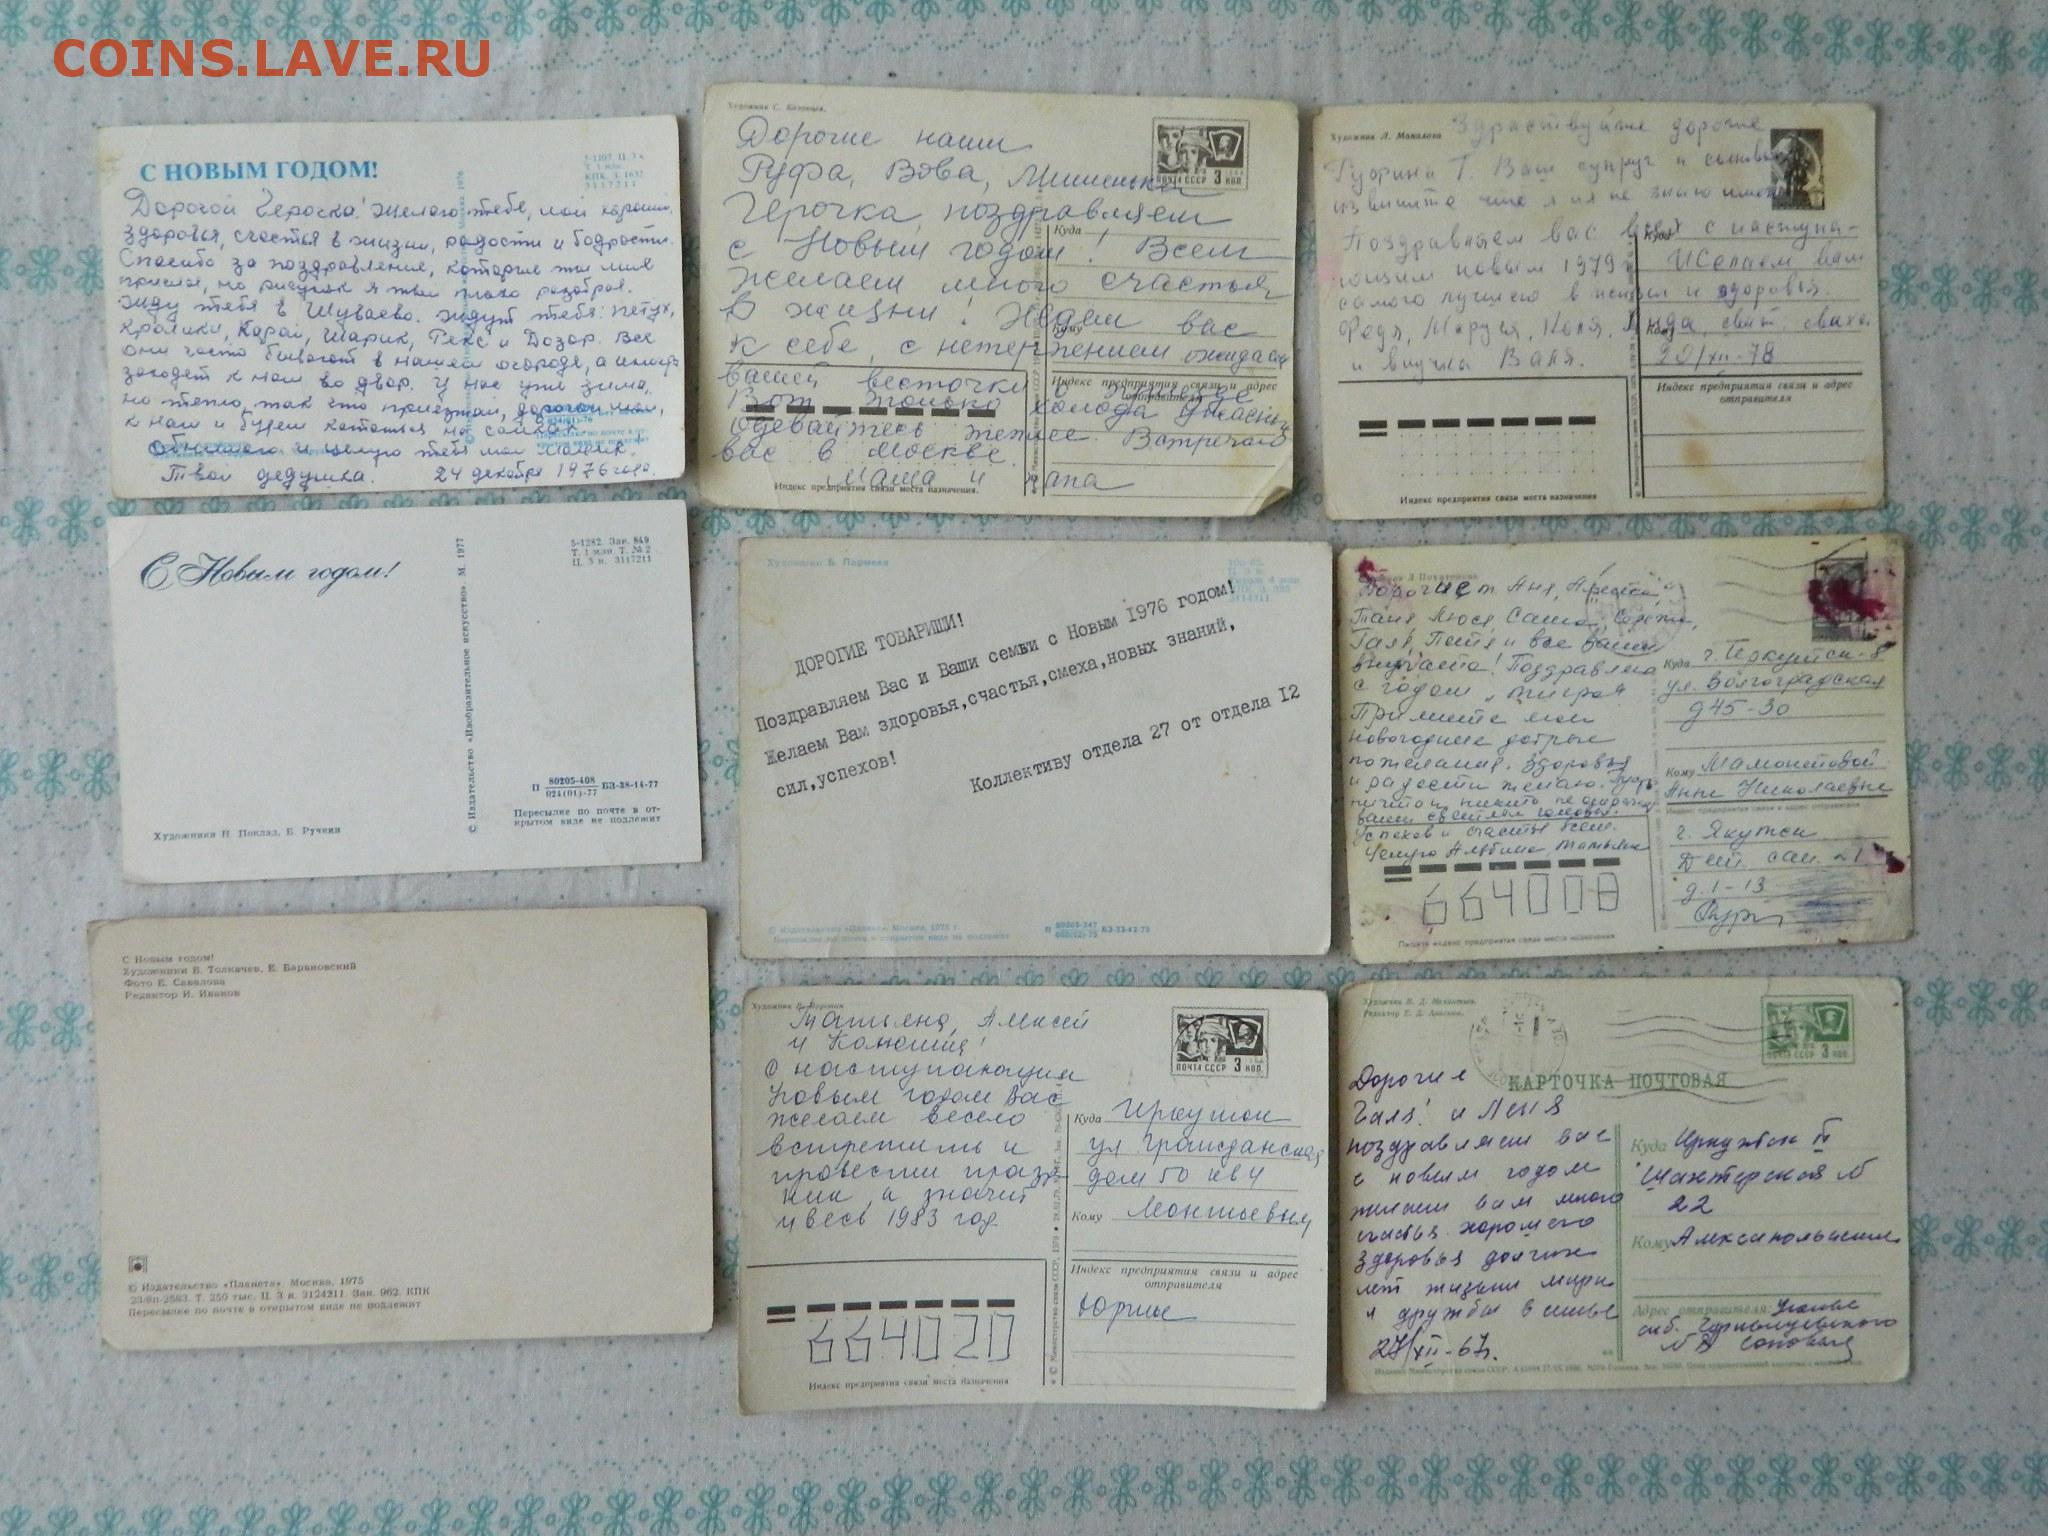 COINS.LAVE.RU
С НОВЫМ ГОДОМ!
5-1107. Ц. 3 к.
Т. 1 млн.
КПК. З. 1632
3117211
Дорогой Герочка! Желаю тебе, мой хороший,
здоровья, счастья в жизни, радости и бодрости.
Спасибо за поздравление, которые ты мне
прислал, но рисунок я твой плохо разобрал.
Жду тебя в Шуваево. Ждут тебя: петух,
кролики, Карай, Шарик, Рекс и Дозор. Все
они часто бывают в нашем огороде, а иногда
заходят к нам во двор. У нас уже зима,
но тепло, так что приезжай, дорогой мой,
к нам и будем кататься на санках.
Обнимаю и целую тебя мой
Твой дедушка. 24 декабря 1976 года.
Художник С.
Дорогие наши
Руфа, Вова, Мишенька
Герочка поздравляем
с Новым годом! Всем
желаем много счастья
в жизни! Ждем вас
к себе, с нетерпением ожидаем
вашей весточки о
Вот только холода ужасные
одевайтесь теплее. Встречаю
вас в Москве.
Маша и папа
ПОЧТА СССР 3 КОП.
Куда
Кому
Индекс предприятия связи и адрес
отправителя
Индекс предприятия связи места назначения.
Художник Л. Манилова
Здравствуйте дорогие
Т. Ваш супруг и сыновья
извините что я их не знаю имён
Поздравляем вас всех с наступа-
ющим новым 1979 г. Желаем вам
самого лучшего в жизни и здоровья.
Федя, Маруся, Коля,
и внучка Валя.
20/XII-78
Куда
Индекс предприятия связи и адрес
отправителя
Индекс предприятия связи места назначения
С Новым годом!
© Издательство «Изобразительное искусство» М. 1977
5-1282. Зак. 849
Т. 1 млн. Т. № 2
Ц. 3 к. 3117211
Художники Н. Поклад, Б. Ручкин
П 80205-408
024(01)-77 БЗ-38-14-77
Пересылке по почте в от-
крытом виде не подлежит
Художник Б. Пармеев
ДОРОГИЕ ТОВАРИЩИ!
Поздравляем Вас и Ваши семьи с Новым 1976 годом!
Желаем Вам здоровья,счастья,смеха,новых знаний,
сил,успехов!
Коллективу отдела 27 от отдела 12
© Издательство «Планета». Москва, 1975 г.
Пересылке по почте в открытом виде не подлежит
П 80205-347
БЗ-33-42-75
Дорогие т Аня,
Таня Люся Саша, Сережа,
Галя, Петя и все ваши
внучата! Поздравляю
с годом "тигра"
Примите мои
новогодние добрые
пожелания. Здоровья
и радости желаю. Пусть
ничто и никто не омрачает
ваши светлые головы.
Успехов и счастья всем.
Целую Альбина Татьяна
Куда г. Иркутск-8
ул. Волгоградская
д 45-30
Кому Мамонтовой
Анне Николаевне
г. Якутск
д. 1-13
664008
Пишите индекс предприятия связи места назначения
С Новым годом!
Художники В. Толкачев, Е. Барановский
Фото Е. Савалова
Редактор И. Иванов
© Издательство «Планета» Москва, 1975
23/вп-2583. Т. 250 тыс. Ц. 3 к. 3124211. Зак. 962. КПК
Пересылке по почте в открытом виде не подлежит
Татьяна, Алексей
и Колюшка!
С наступающим
Новым годом Вас
желаем весело
встретить и
провести празд-
ник, а значит
и весь 1983 год
ПОЧТА СССР 3 КОП.
Куда Иркутск
ул Гражданская
дом 50 кв 4
Кому Леонтьевым
Индекс предприятия связи и адрес
отправителя
Юрины
664020
Индекс предприятия связи места назначения
ПОЧТА СССР 3 КОП.
КАРТОЧКА ПОЧТОВАЯ
Дорогие
Галя! и Лёня
поздравляем вас
с новым годом
желаем вам много
счастья хорошего
здоровья долгих
лет жизни мира
и дружбы в семье
27/XII-67г.
Куда Иркутск II
Шахтерская №
22
Кому
Адрес отправителя: